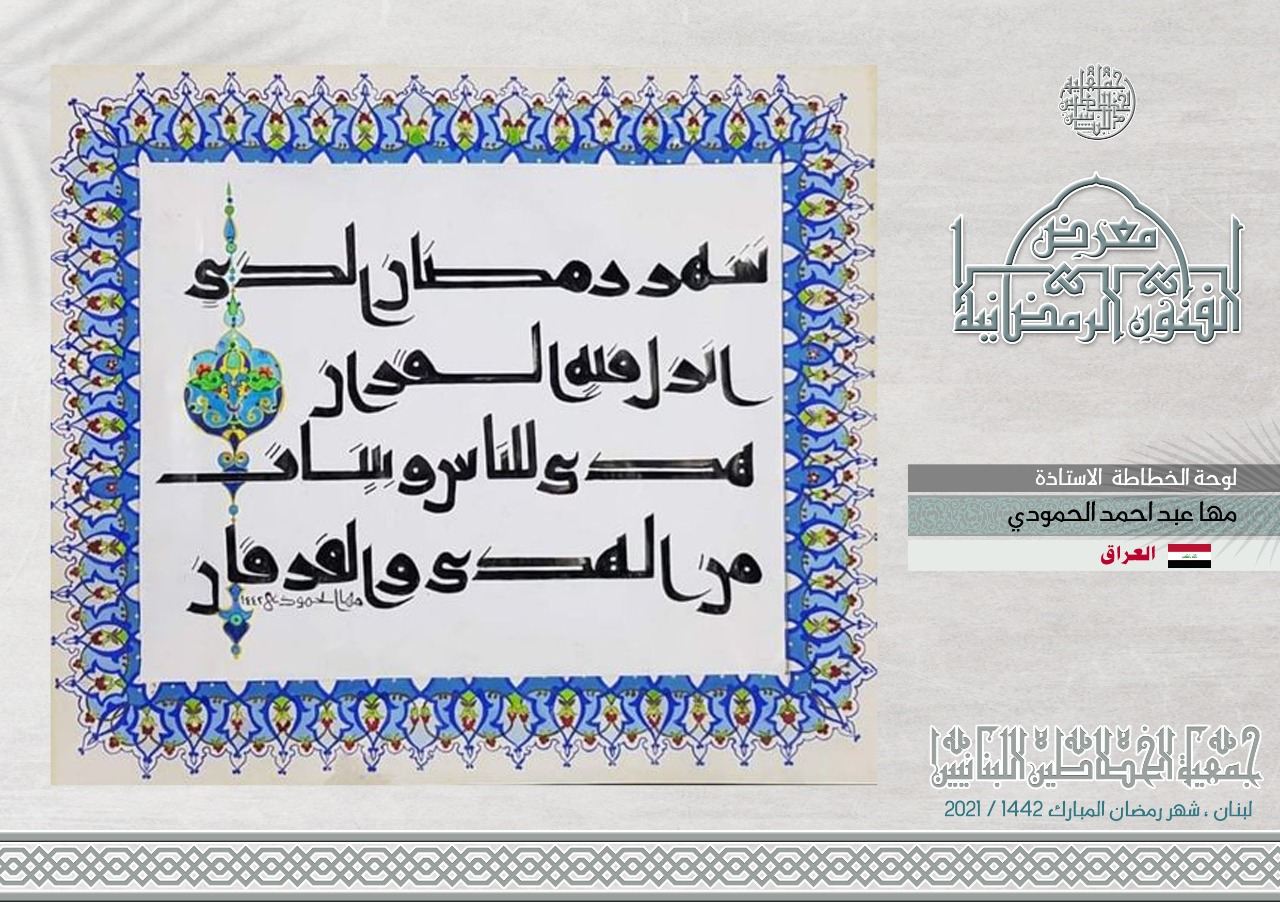 شهر رمضان الذي
انزل فيه القران
هدى للناس وبينات
من الهدى والفرقان
مها الحمودي ١٤٤٢
معرض
الفنون الرمضانية
لوحة الخطاطة الاستاذة
مها عبد احمد الحمودي
العراق
جمعية الخطاطين اللبنانيين
لبنان ، شهر رمضان المبارك 1442 / 2021